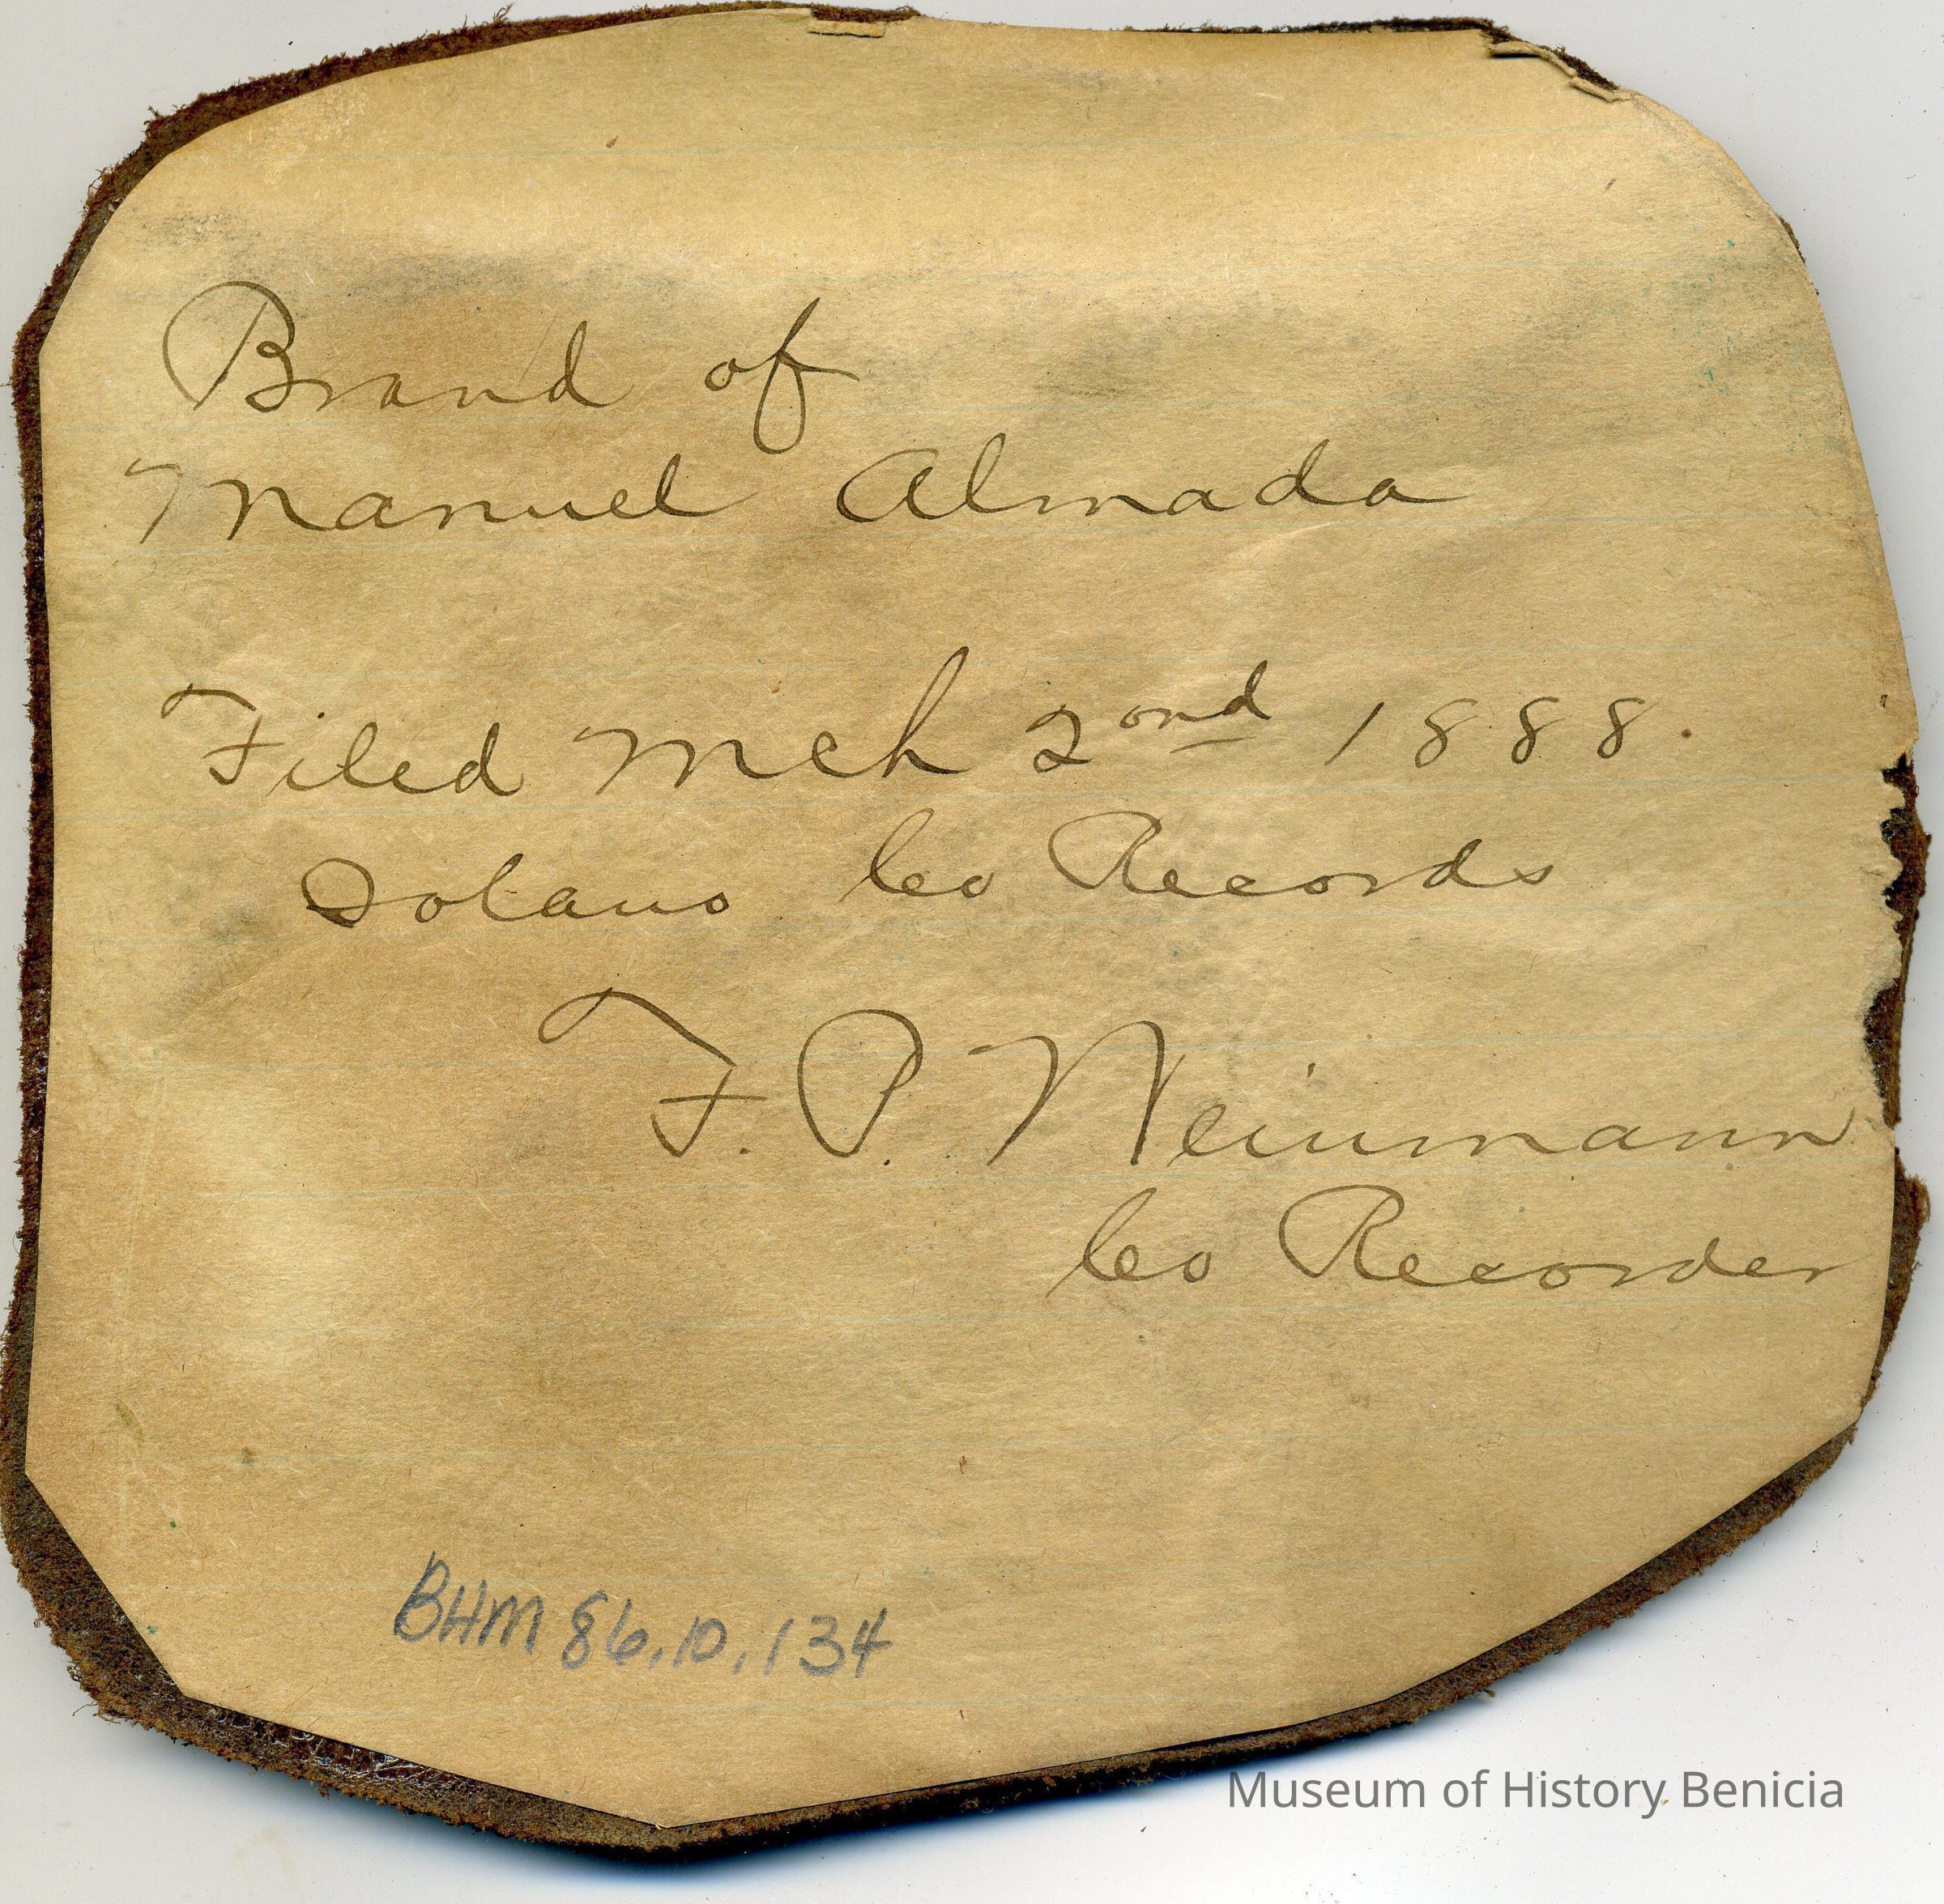 Brand of
Manuel Almada
Filed Mch 2ond 1888.
Solano Co Records
F. P. Weinmann
Co Recorder
BHM 86.10.134
Museum of History Benicia